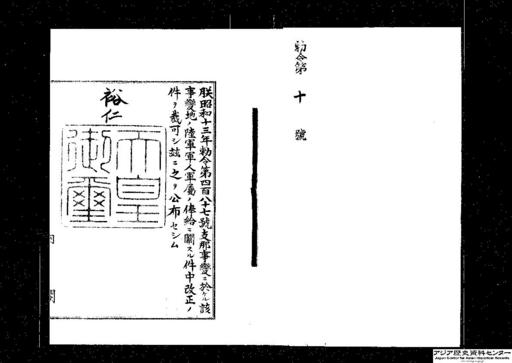 勅令第十號
朕昭和十三年勅令第四百八十七號支那事變ニ於ケル該
事變地ノ陸軍軍人軍屬ノ俸給ニ關スル件中改正ノ
件ヲ裁可シ茲ニ之ヲ公布セシム
裕仁
天皇御璽
内閣
アジア歴史資料センター
Japan Center for Asian Historical Records